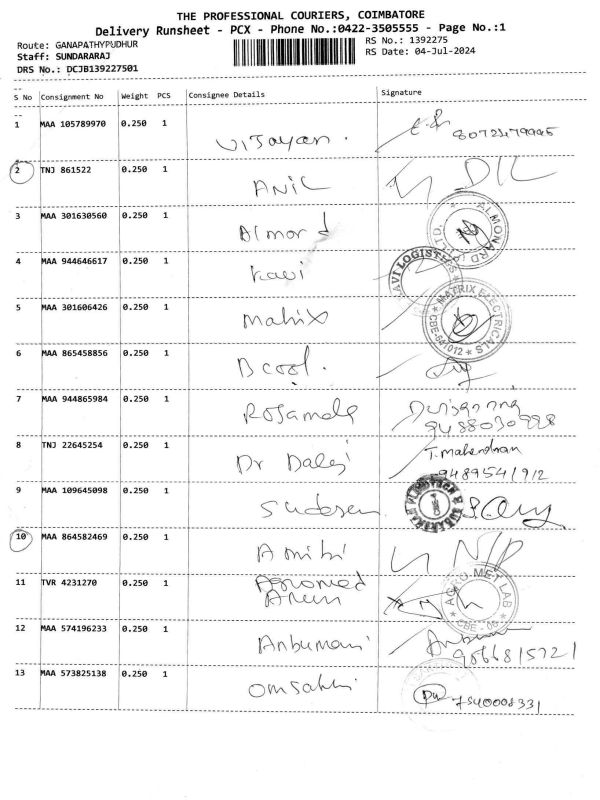 THE PROFESSIONAL COURIERS, COIMBATORE
Delivery Runsheet - PCX - Phone No.:0422-3505555 - Page No.:1
Route: GANAPATHYPUDHUR
RS No.: 1392275
Staff: SUNDARARAJ
RS Date: 04-Jul-2024
DRS No.: DCJB139227501
S No Consignment No Weight PCS Consignee Details Signature
1 MAA 105789970 0.250 1 Vijayan.
2 TNJ 861522 0.250 1 ANIL
3 MAA 301630560 0.250 1 Almord ALMONARD LTD.
4 MAA 944646617 0.250 1 Kavi KAVI LOGISTICS
5 MAA 301606426 0.250 1 Matrix MATRIX ELECTRICALS CBE-641012
6 MAA 865458856 0.250 1 Bcool.
7 MAA 944865984 0.250 1 Rojamala 9488030998
8 TNJ 22645254 0.250 1 Dr Balaji T. Mahendran
9489541912
9 MAA 109645098 0.250 1
10 MAA 864582469 0.250 1
11 TVR 4231270 0.250 1 Agromed AGRO MET LAB CBE - 06
12 MAA 574196233 0.250 1 Anbumani
9566815721
13 MAA 573825138 0.250 1 Omsakthi 7540008331